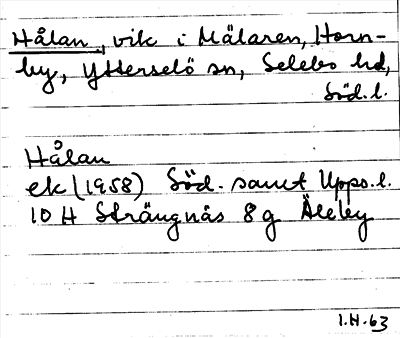 Hålan, vik i Mälaren, Horn-
by, Ytterselö sn, Selebo hd,
Söd.l.
Hålan
ek (1958) Söd. samt Upps.l.
10 H Strängnäs 8 g Äleby
1.H.63